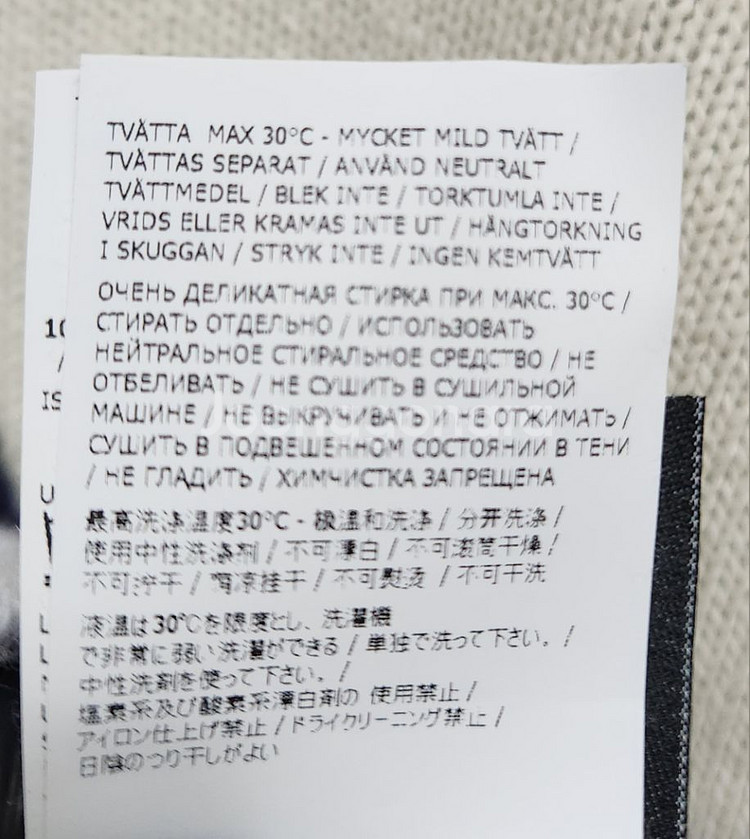 TVÄTTA MAX 30°C - MYCKET MILD TVÄTT /
TVÄTTAS SEPARAT / ANVÄND NEUTRALT
TVÄTTMEDEL / BLEK INTE / TORKTUMLA INTE /
VRIDS ELLER KRAMAS INTE UT / HÄNGTORKNING
I SKUGGAN / STRYK INTE / INGEN KEMTVÄTT
ОЧЕНЬ ДЕЛИКАТНАЯ СТИРКА ПРИ МАКС. 30°C /
СТИРАТЬ ОТДЕЛЬНО / ИСПОЛЬЗОВАТЬ
НЕЙТРАЛЬНОЕ СТИРАЛЬНОЕ СРЕДСТВО / НЕ
ОТБЕЛИВАТЬ / НЕ СУШИТЬ В СУШИЛЬНОЙ
МАШИНЕ / НЕ ВЫКРУЧИВАТЬ И НЕ ОТЖИМАТЬ /
СУШИТЬ В ПОДВЕШЕННОМ СОСТОЯНИИ В ТЕНИ
/ НЕ ГЛАДИТЬ / ХИМЧИСТКА ЗАПРЕЩЕНА
最高洗涤温度30°C - 极温和洗涤 / 分开洗涤 /
使用中性洗涤剂 / 不可漂白 / 不可滚筒干燥 /
不可拧干 / 阴凉挂干 / 不可熨烫 / 不可干洗
液温は30℃を限度とし、洗濯機
で非常に弱い洗濯ができる / 単独で洗って下さい。 /
中性洗剤を使って下さい。 /
塩素系及び酸素系漂白剤の 使用禁止 /
アイロン仕上げ禁止 / ドライクリーニング禁止 /
日陰のつり干しがよい